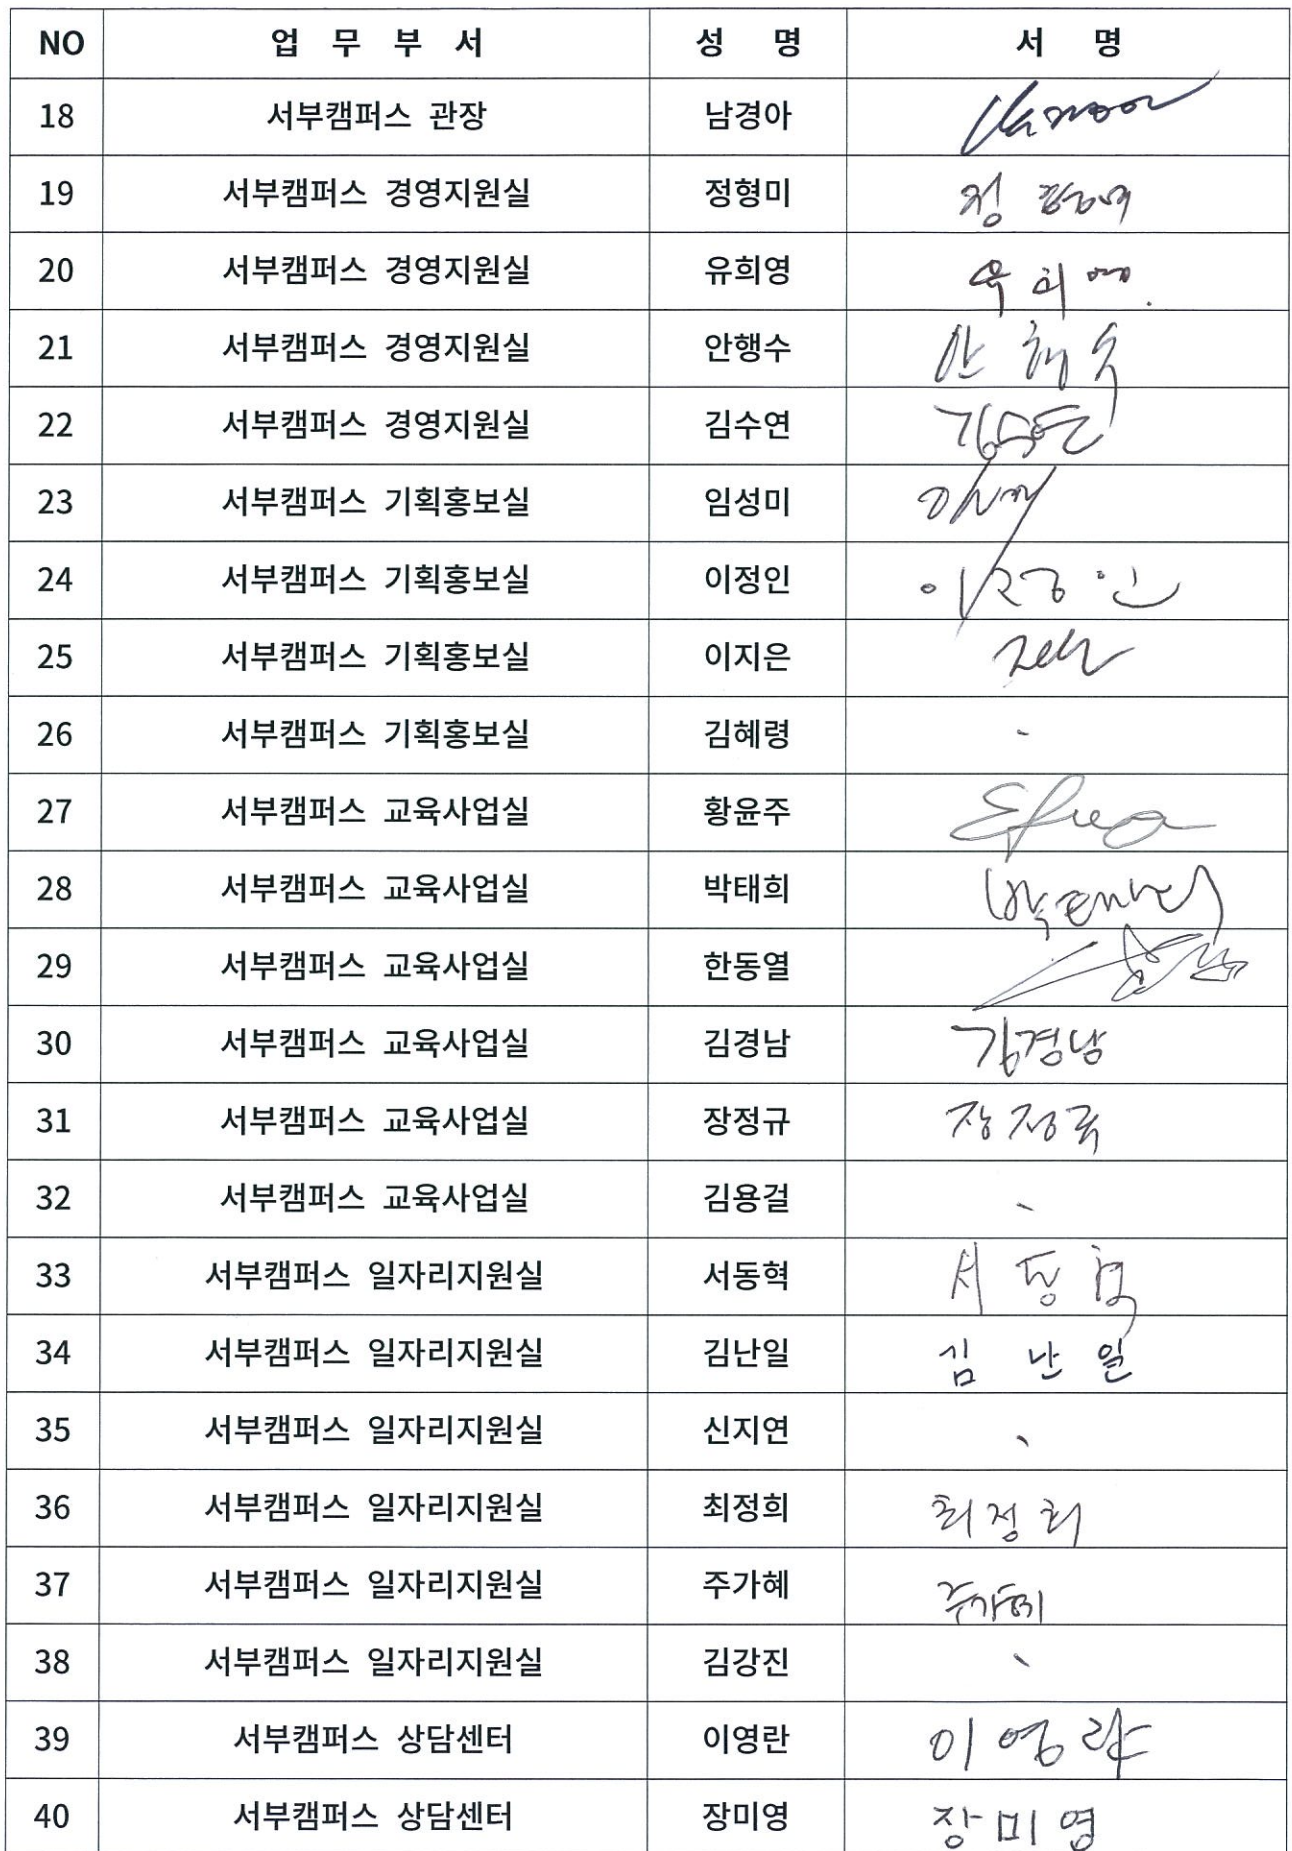 NO 업 무 부 서 성 명 서 명
18 서부캠퍼스 관장 남경아
19 서부캠퍼스 경영지원실 정형미 정형미
20 서부캠퍼스 경영지원실 유희영 유희영.
21 서부캠퍼스 경영지원실 안행수 안행수
22 서부캠퍼스 경영지원실 김수연 김수연
23 서부캠퍼스 기획홍보실 임성미
24 서부캠퍼스 기획홍보실 이정인 이정인
25 서부캠퍼스 기획홍보실 이지은
26 서부캠퍼스 기획홍보실 김혜령 -
27 서부캠퍼스 교육사업실 황윤주
28 서부캠퍼스 교육사업실 박태희 박태희
29 서부캠퍼스 교육사업실 한동열
30 서부캠퍼스 교육사업실 김경남 김경남
31 서부캠퍼스 교육사업실 장정규 장정규
32 서부캠퍼스 교육사업실 김용걸 -
33 서부캠퍼스 일자리지원실 서동혁 서동혁
34 서부캠퍼스 일자리지원실 김난일 김난일
35 서부캠퍼스 일자리지원실 신지연 -
36 서부캠퍼스 일자리지원실 최정희 최정희
37 서부캠퍼스 일자리지원실 주가혜 주가혜
38 서부캠퍼스 일자리지원실 김강진 -
39 서부캠퍼스 상담센터 이영란 이영란
40 서부캠퍼스 상담센터 장미영 장미영